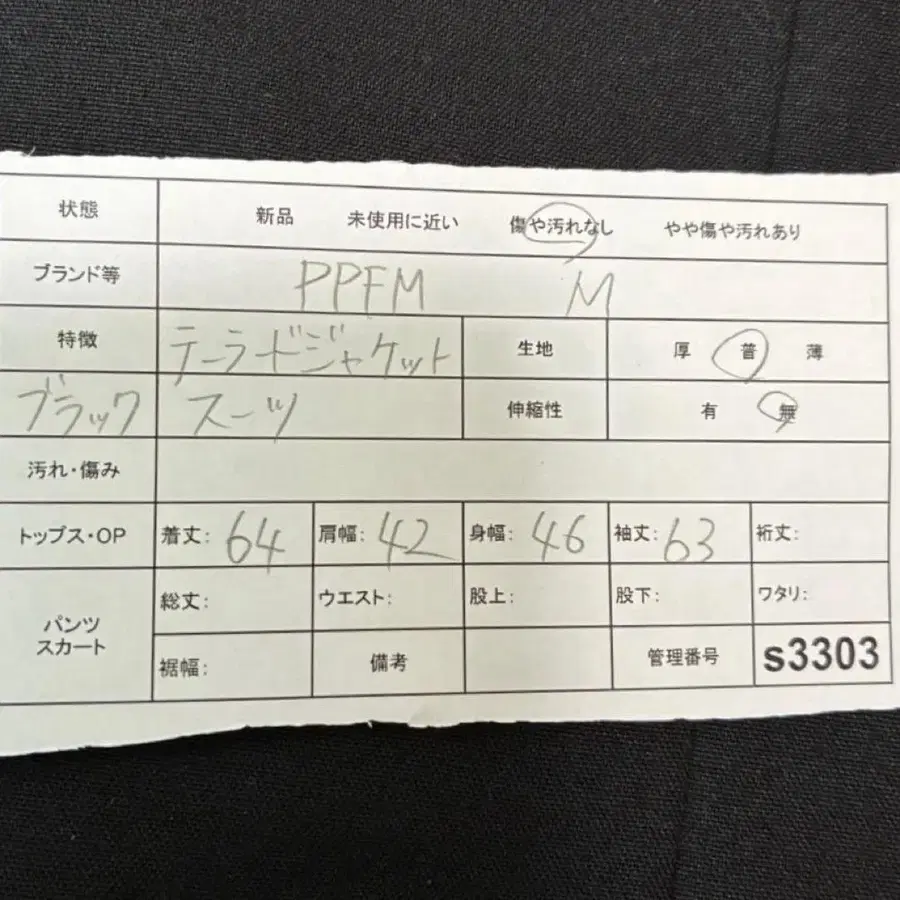 状態 新品 未使用に近い 傷や汚れなし やや傷や汚れあり
ブランド等 PPFM M
特徴 テーラードジャケット 生地 厚 普 薄
ブラック スーツ 伸縮性 有 無
汚れ・傷み
トップス・OP 着丈: 64 肩幅: 42 身幅: 46 袖丈: 63 裄丈:
パンツ スカート 総丈: ウエスト: 股上: 股下: ワタリ:
裾幅: 備考 管理番号 s3303